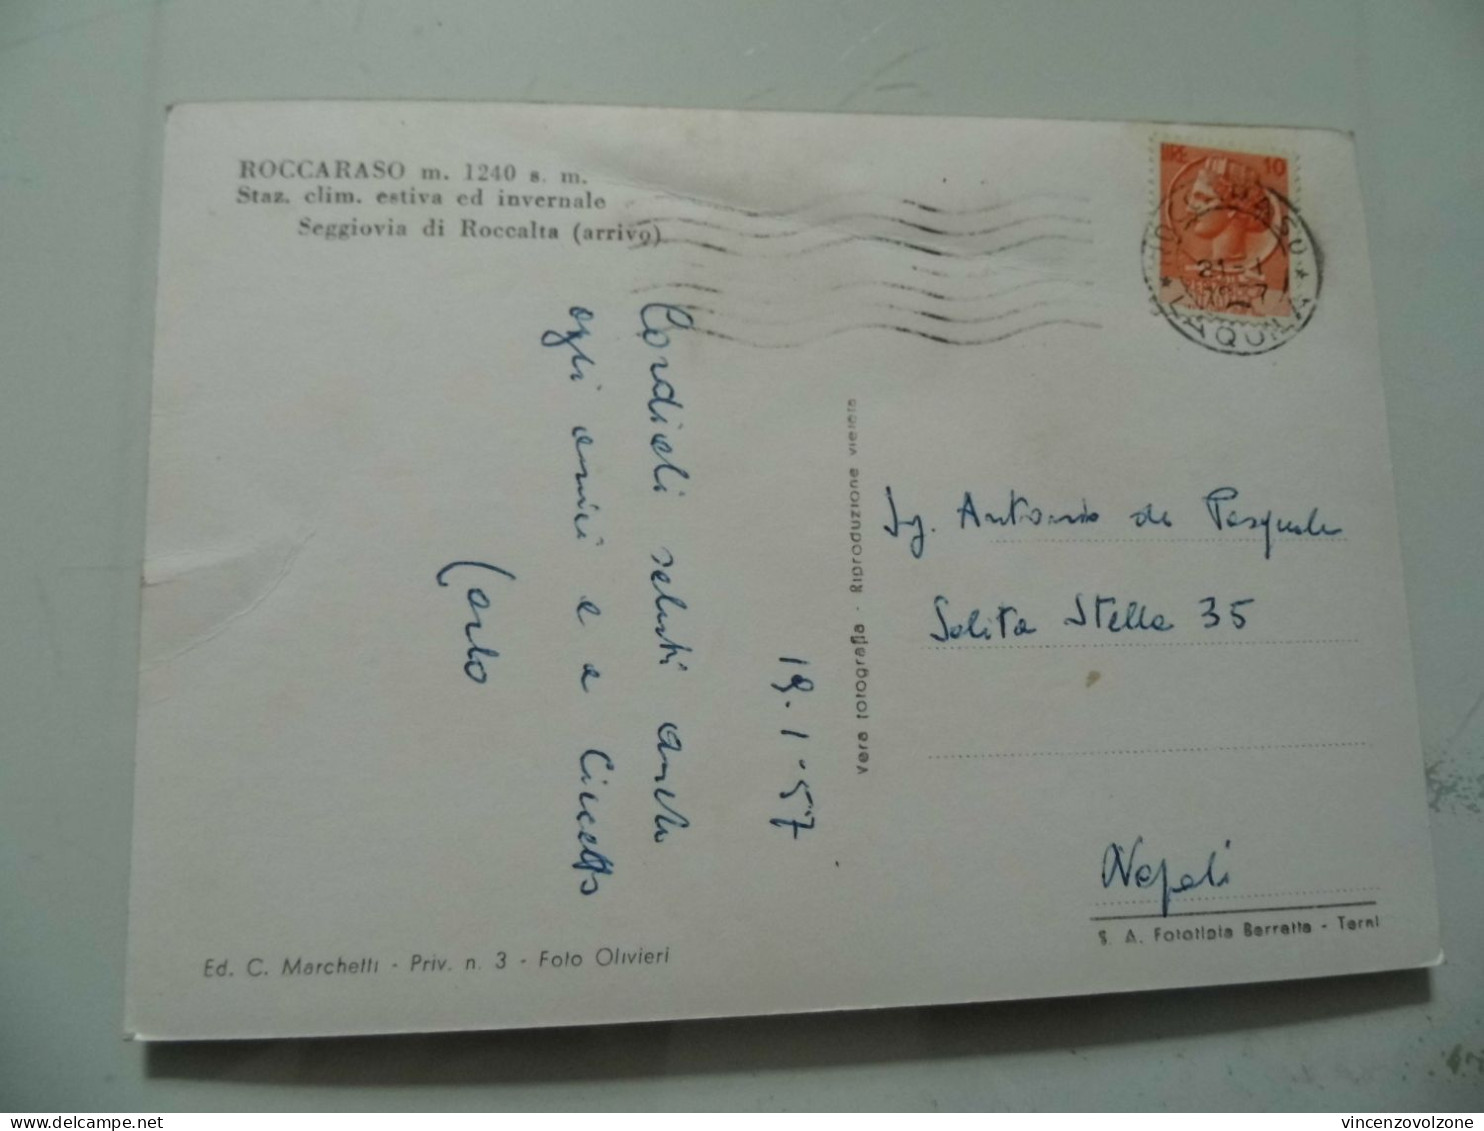 ROCCARASO m. 1240 s. m.
Staz. clim. estiva ed invernale
Seggiovia di Roccalta (arrivo)
LIRE 10
ROCCARASO
21-1
* L'AQUILA *
19.1.57
Cordiali saluti anche
agli amici e a
Carlo
Vera fotografia - Riproduzione vietata
Ing. Antonio de Pasquale
Salita Stella 35
Napoli
Ed. C. Marchetti - Priv. n. 3 - Foto Olivieri
S. A. Fototipia Berretta - Terni
vincenzovolzone